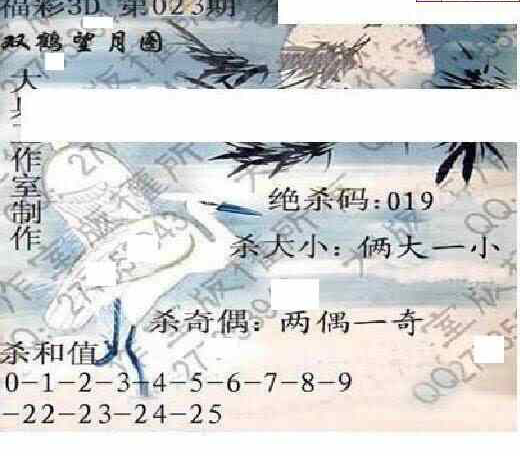 福彩3D 第023期
双鹤望月图
大
工作室制作
绝杀码:019
杀大小:俩大一小
杀奇偶:两偶一奇
杀和值
0-1-2-3-4-5-6-7-8-9
-22-23-24-25